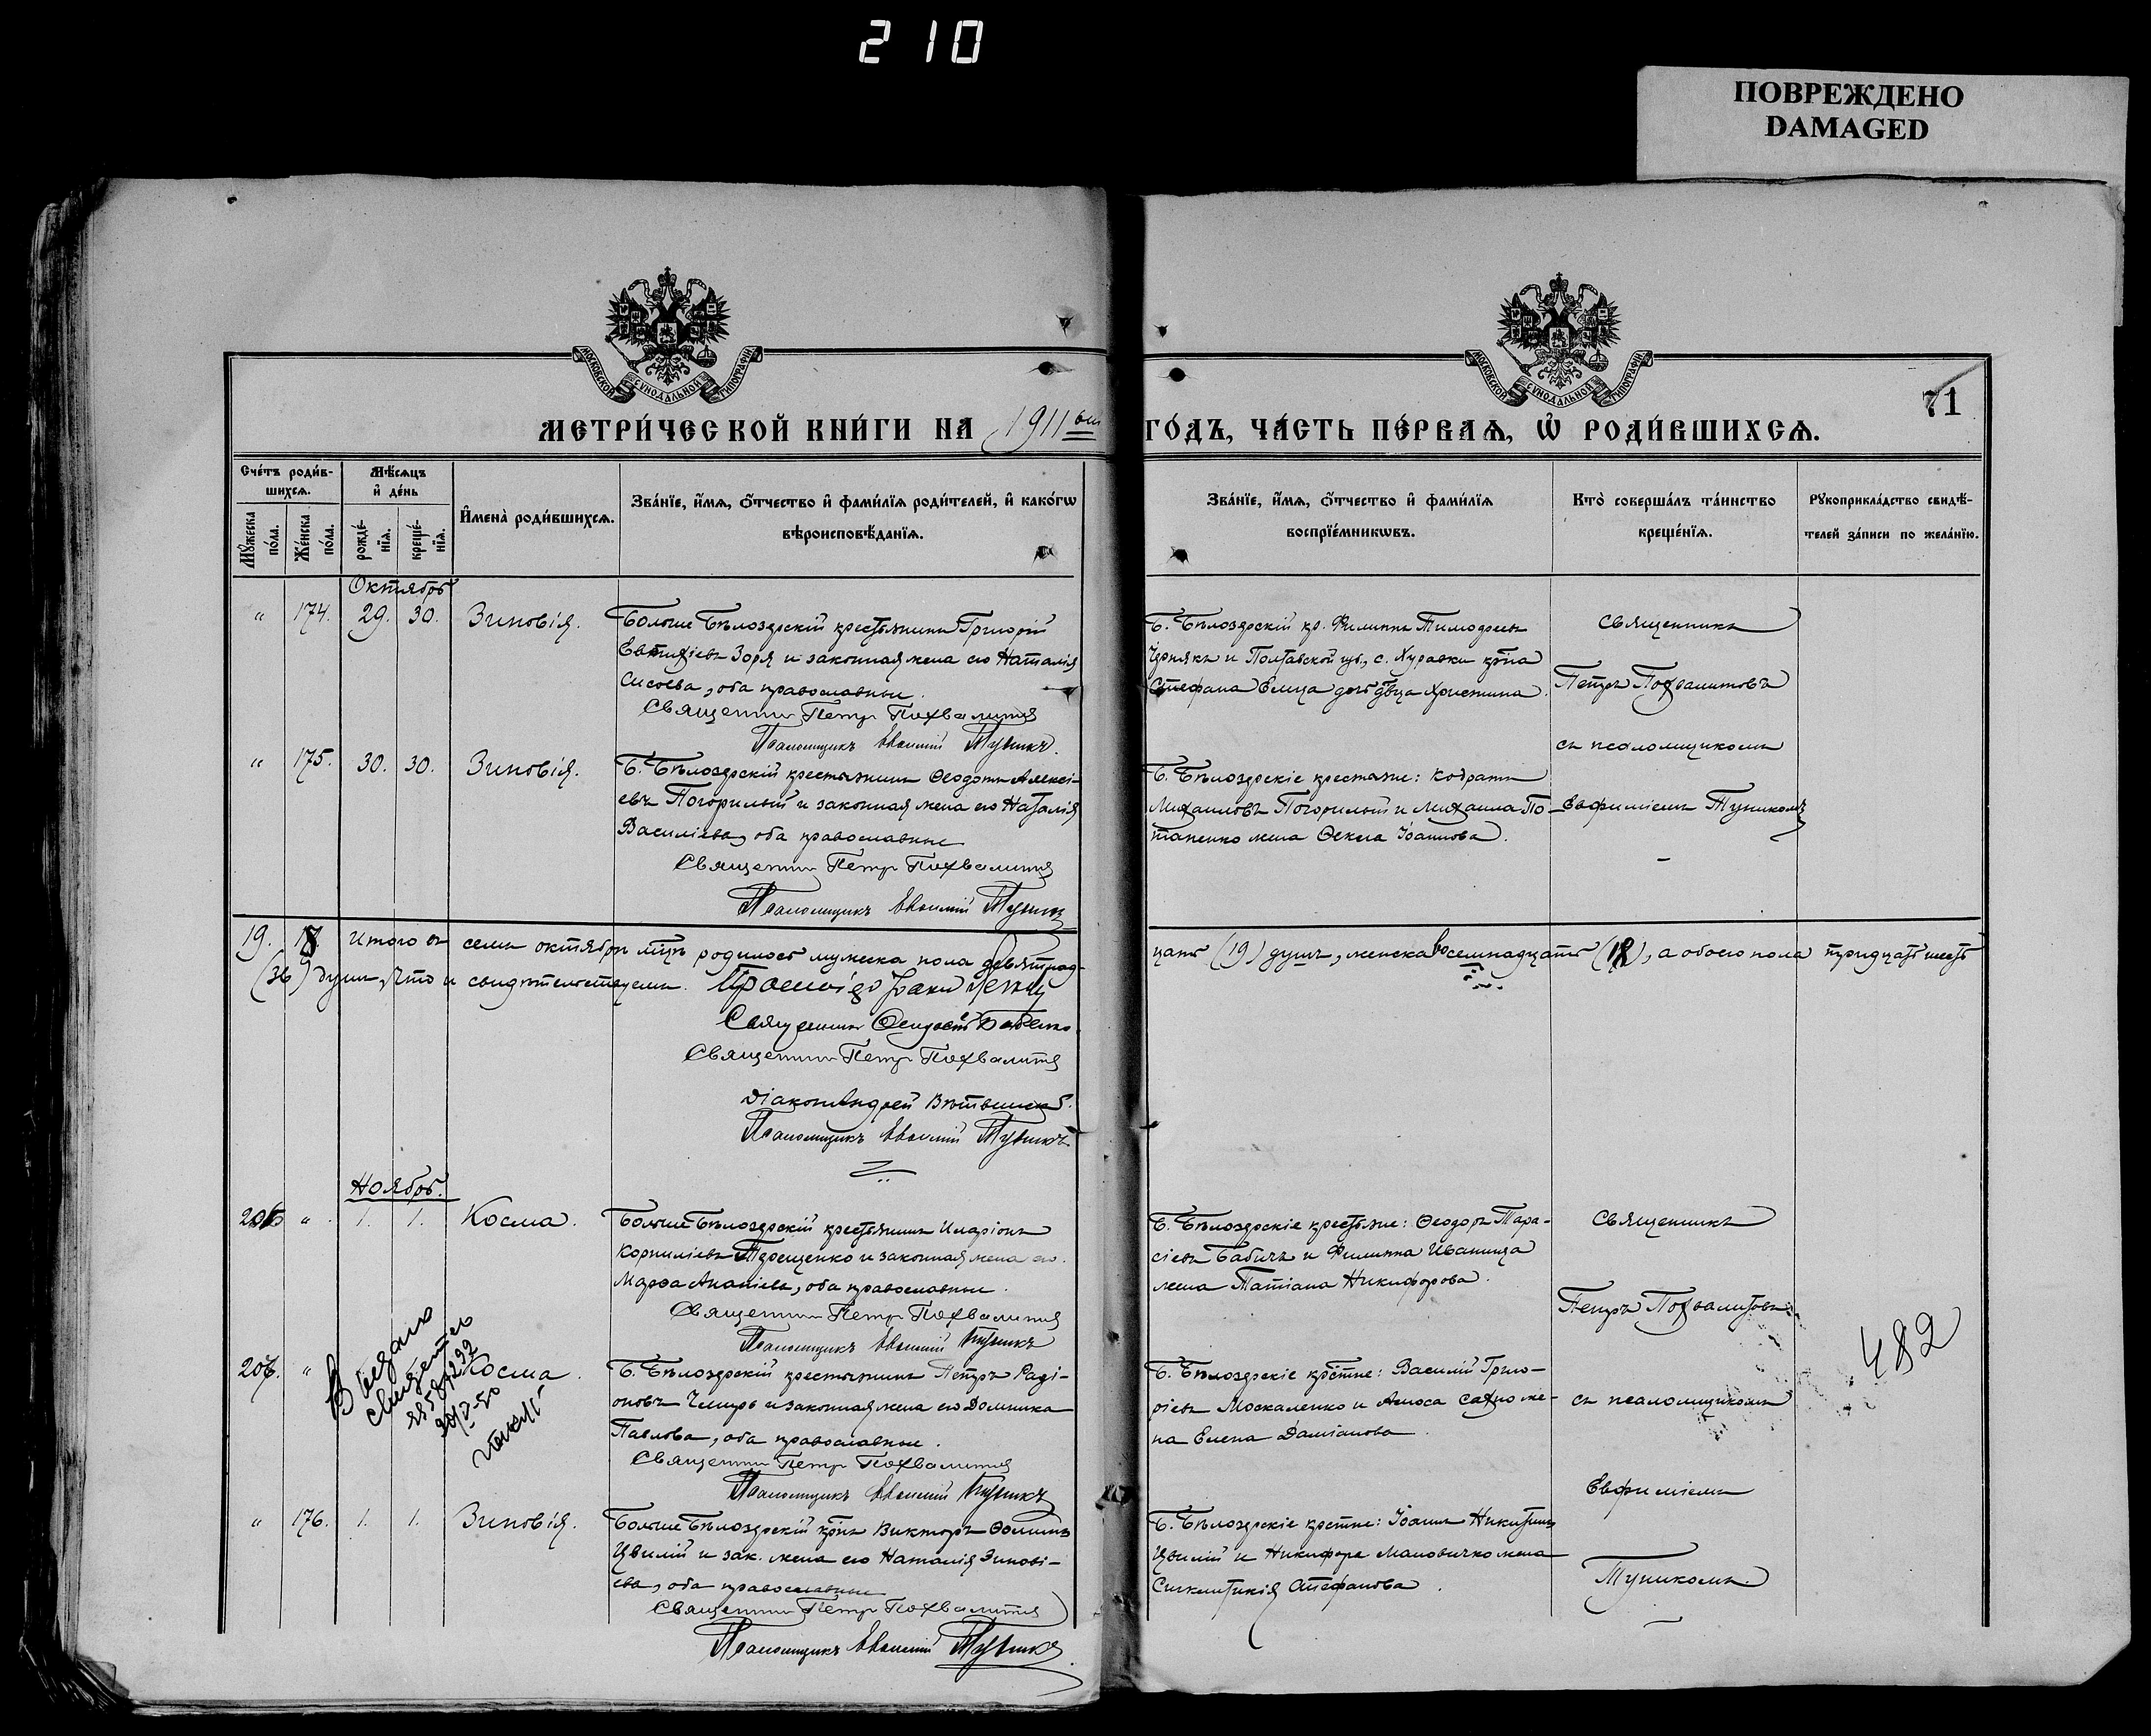 210
ПОВРЕЖДЕНО
DAMAGED
МОСКОВСКОЙ СѴНОДАЛЬНОЙ ТИПОГРАФІИ
МОСКОВСКОЙ СѴНОДАЛЬНОЙ ТИПОГРАФІИ
71
МЕТРИ́ЧЕСКОЙ КНИ́ГИ НА 1911 ГО́ДЪ, ЧА́СТЬ ПЕ́РВАѦ, Ѡ҆ РОДИ́ВШИХСѦ.
Сче́тъ роди́в-
шихсѧ.
Мꙋ́жеска по́ла.
Же́нска по́ла.
Мѣ́сѧцъ
и҆ де́нь
рожде́-нїѧ.
креще́-нїѧ.
И҆мена̀ роди́вшихсѧ.
Зва́нїе, и҆́мѧ, ѻ҆́тчество и҆ фами́лїѧ роди́телей, и҆ како́гѡ
вѣроисповѣ́данїѧ.
Зва́нїе, и҆́мѧ, ѻ҆́тчество и҆ фами́лїѧ
воспрїе́мникѡвъ.
Кто̀ соверша́лъ та́инство
креще́нїѧ.
Рꙋкоприкла́дство свидѣ́-
телей за́писи по жела́нїю.
Октябрь
" 174. 29. 30. Зиновія.
Больше Бѣлозерскій крестьянинъ Григорій
Евтихіевъ Зоря и законная жена его Наталія
Сисоева, оба православные.
Священник Петр Похвалитов
Псаломщикъ Евфимій Тупикъ.
Б. Бѣлозерскій кр. Филиппъ Тимофеевъ
Чернякъ и Полтавской губ., с. Журавки
Стефана дочь дѣвица Христина.
Священникъ
Петръ Похвалитовъ
съ псаломщикомъ
Евфиміемъ Тупикомъ
" 175. 30. 30. Зиновія.
Б. Бѣлозерскій крестьянинъ Ѳеодотъ Алексі-
евъ Погорилый и законная жена его Наталія
Василіева, оба православные
Священник Петр Похвалитов
Псаломщикъ Евфимій Тупикъ
Б. Бѣлозерскіе крестьяне: Кодратъ
Михаиловъ Погорилый и Михаила По-
тапенко жена Ѳекла Іоаннова.
19. 18. Итого въ семъ октябрѣ мѣцѣ родилось мужеска пола девятнад-
цать (19) душъ, женска восемнадцать (18), а обоего пола тридцать шесть
(36) душъ, что и свидѣтельствуемъ.
Священник Петр Похвалитов
Діаконъ Андрей
Псаломщикъ Евфимій Тупикъ.
Ноябрь.
206 " 1. 1. Косма.
Больше Бѣлозерскій крестьянинъ Иларіонъ
Корниліевъ Терещенко и законная жена его
Марѳа Ананіева, оба православные.
Священник Петр Похвалитов
Псаломщикъ Евфимій Тупикъ
Б. Бѣлозерскіе крестьяне: Ѳеодоръ Тара-
сіевъ Бабичъ и Филиппа Иваница
жена Татіана Никифорова.
Священникъ
Петръ Похвалитовъ
съ псаломщикомъ
Евфиміемъ
Тупикомъ.
207. " Косма.
Б. Бѣлозерскій крестьянинъ Петръ Раді-
оновъ Чмырь и законная жена его Домника
Павлова, оба православные.
Священник Петр Похвалитов
Псаломщикъ Евфимій Тупикъ
Б. Бѣлозерскіе крестне: Василій Григо-
ріевъ Москаленко и Амоса Сахно же-
на Елена Даміанова
482
" 176. 1. 1. Зиновія.
Больше Бѣлозерскій Викторъ Ѳоминъ
Цвилій и зак. жена его Наталія Зинові-
ева, оба православные
Священник Петр Похвалитов
Псаломщикъ Евфимій Тупикъ.
Б. Бѣлозерскіе крестне: Іоаннъ Никитинъ
Цвилій и Никифора жена
Синклитикія Стефанова.